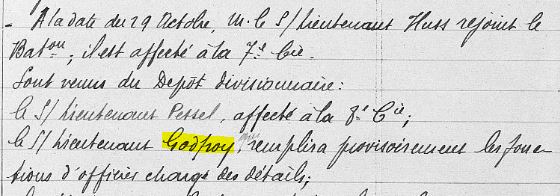 - A la date du 29 Octobre, M. le S/ Lieutenant Huss rejoint le
Bat^on; il est affecté à la 7^e Cie.
Sont venus du Dépôt divisionnaire:
le S/ Lieutenant Pessel, affecté à la 8^e C^ie;
le S/ Lieutenant Godfroy qui remplira provisoirement les fonc-
tions d'officier chargé des détails;